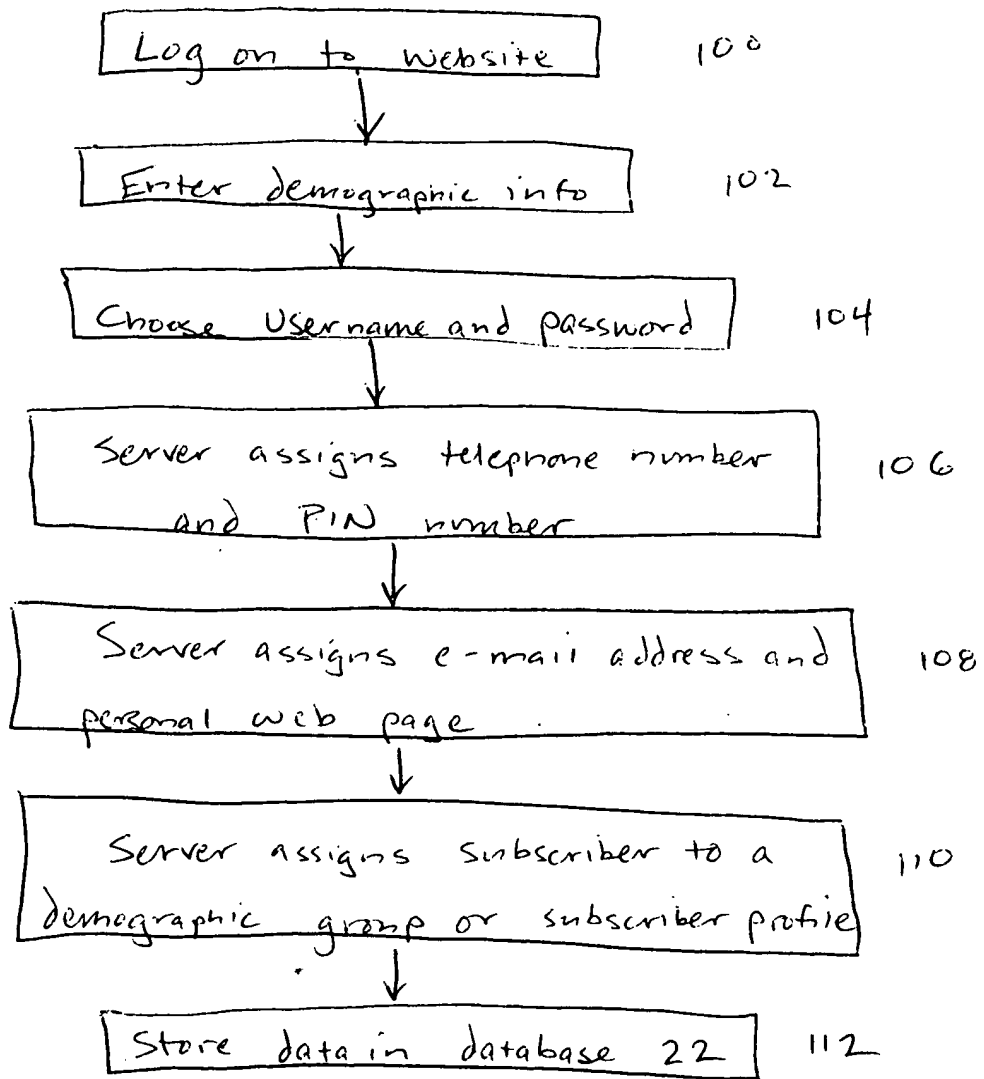 Log on to website 100
Enter demographic info 102
Choose Username and password 104
Server assigns telephone number
and PIN number 106
Server assigns e-mail address and 108
personal web page
Server assigns subscriber to a 110
demographic group or subscriber profile
Store data in database 22 112